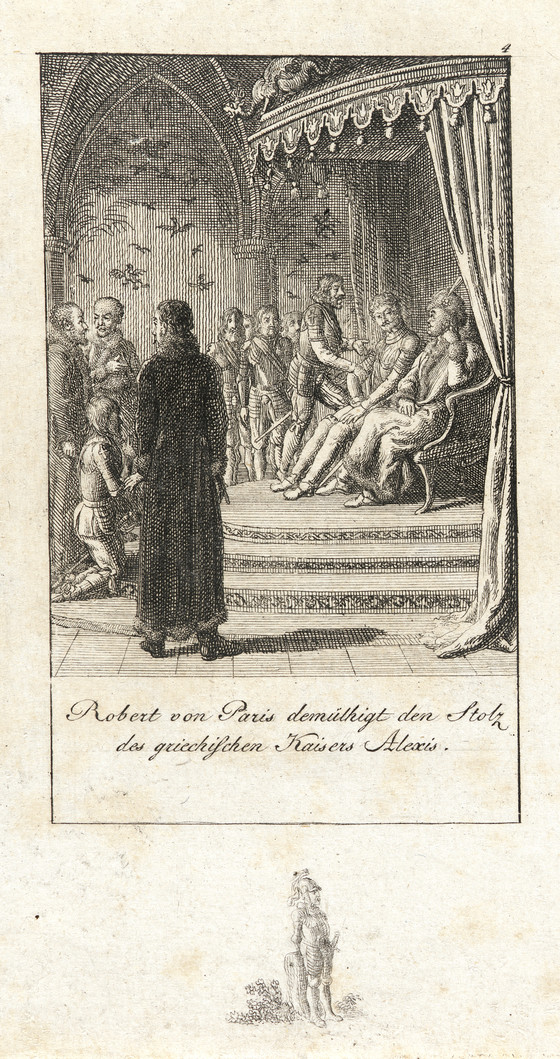 4
Robert von Paris demüthigt den Stolz
des griechiſchen Kaisers Alexis.